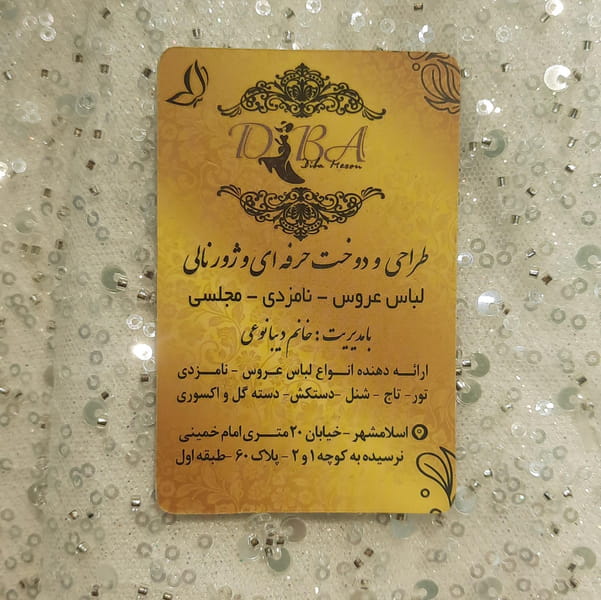 DIBA
Diba Mezon
طراحی و دوخت حرفه ای و ژورنالی
لباس عروس - نامزدی - مجلسی
بامدیریت : خانم دیبا نوعی
ارائه دهنده انواع لباس عروس - نامزدی
تور - تاج - شنل - دستکش - دسته گل و اکسوری
اسلامشهر - خیابان ۲۰ متری امام خمینی
نرسیده به کوچه ۱ و ۲ - پلاک ۶۰ - طبقه اول